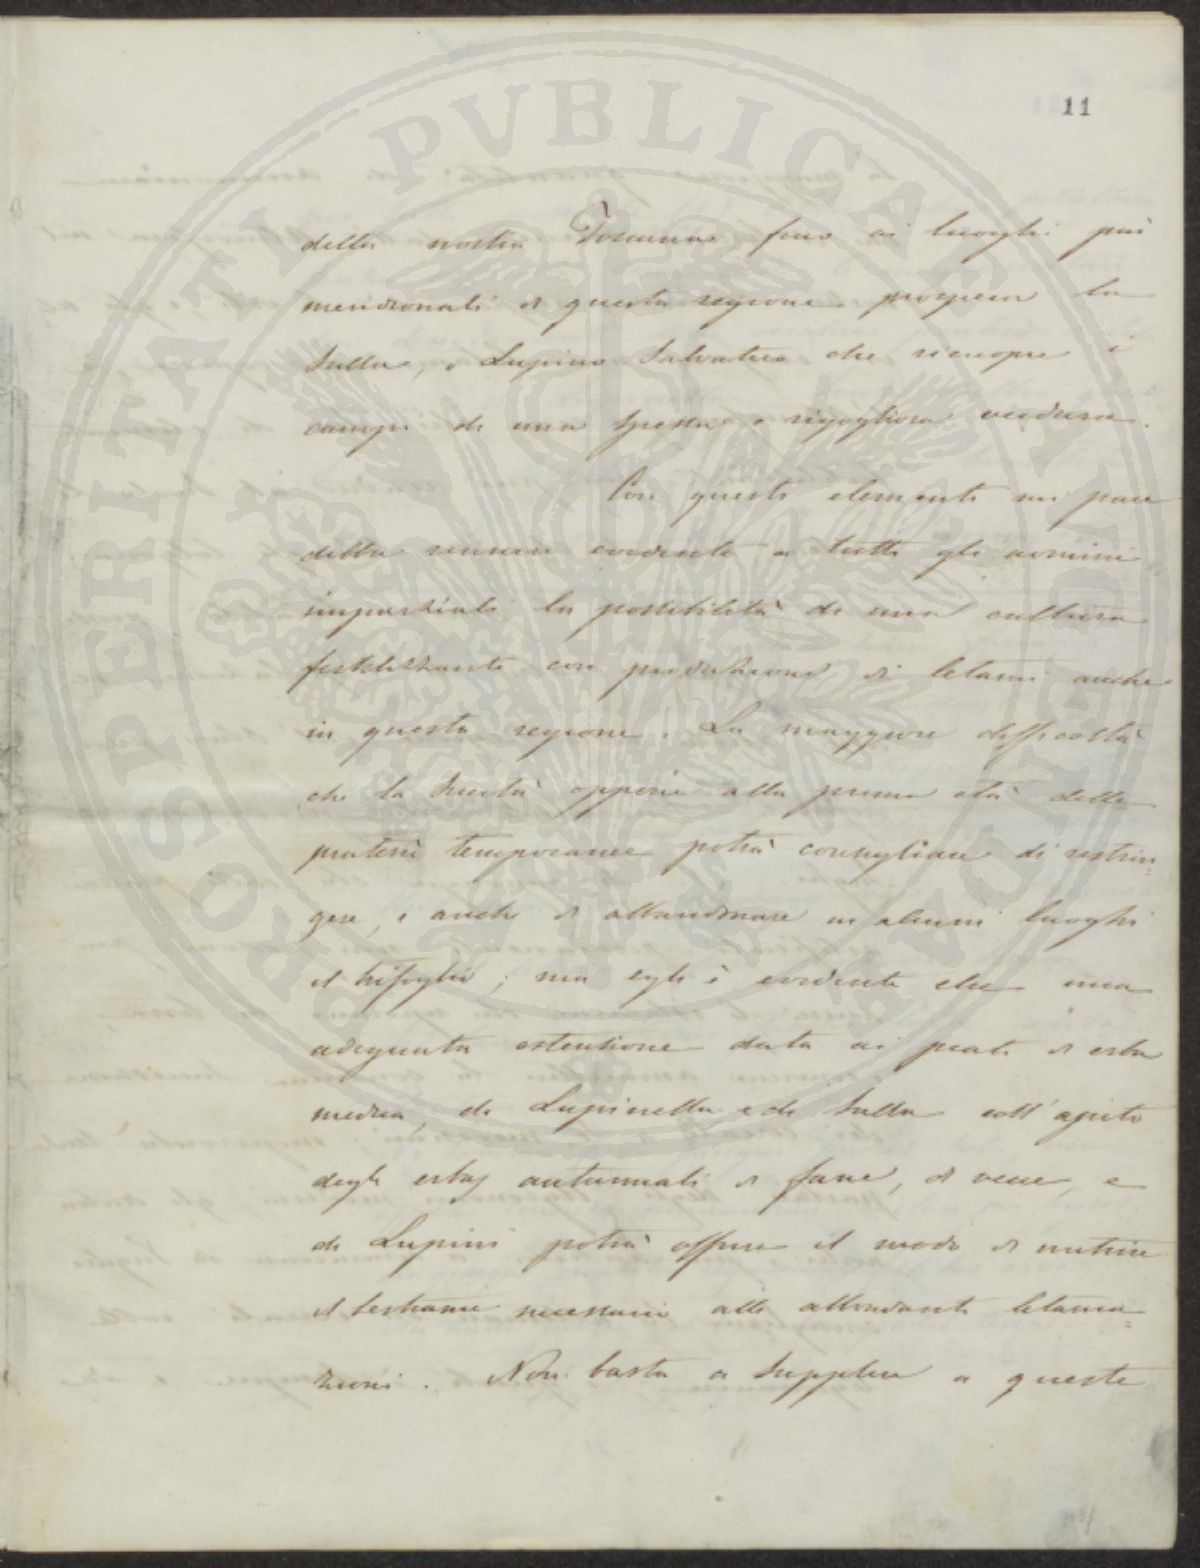 PROSPERITATI PVBLICAE AVGENDAE
11
della nostra Toscana fino ai luoghi più
meridionali di questa regione prospera la
Sulla, o Lupino Salvatico che ricuopre i
campi di una spessa e rigogliosa verdura.
Con questi elementi mi pare
debba venire evidente a tutti gli uomini
imparziali la possibilità di una cultura
fertilizzante con produzione di letami anche
in questa regione. La maggiore difficoltà
che la siccità oppone alla prima età delle
praterie temporanee potrà consigliare di restrin-
gere, e anche di abbandonare in alcuni luoghi
il trifoglio; ma egli è evidente che una
adequata estensione data ai prati di erba
medica, di Lupinella e di Sulla coll'ajuto
degli erbaj autunnali di fave, di vecce, e
di Lupini potrà offrire il modo di nutrire
il bestiame necessario alle abbondanti letama-
zioni. Non basta a supplire a queste